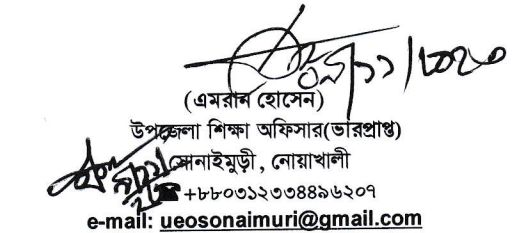 (এমরান হোসেন)
উপজেলা শিক্ষা অফিসার(ভারপ্রাপ্ত)
সোনাইমুড়ী, নোয়াখালী
☎+৮৮০৩১২৩৩৪৪৯৬২০৭
e-mail: ueosonaimuri@gmail.com